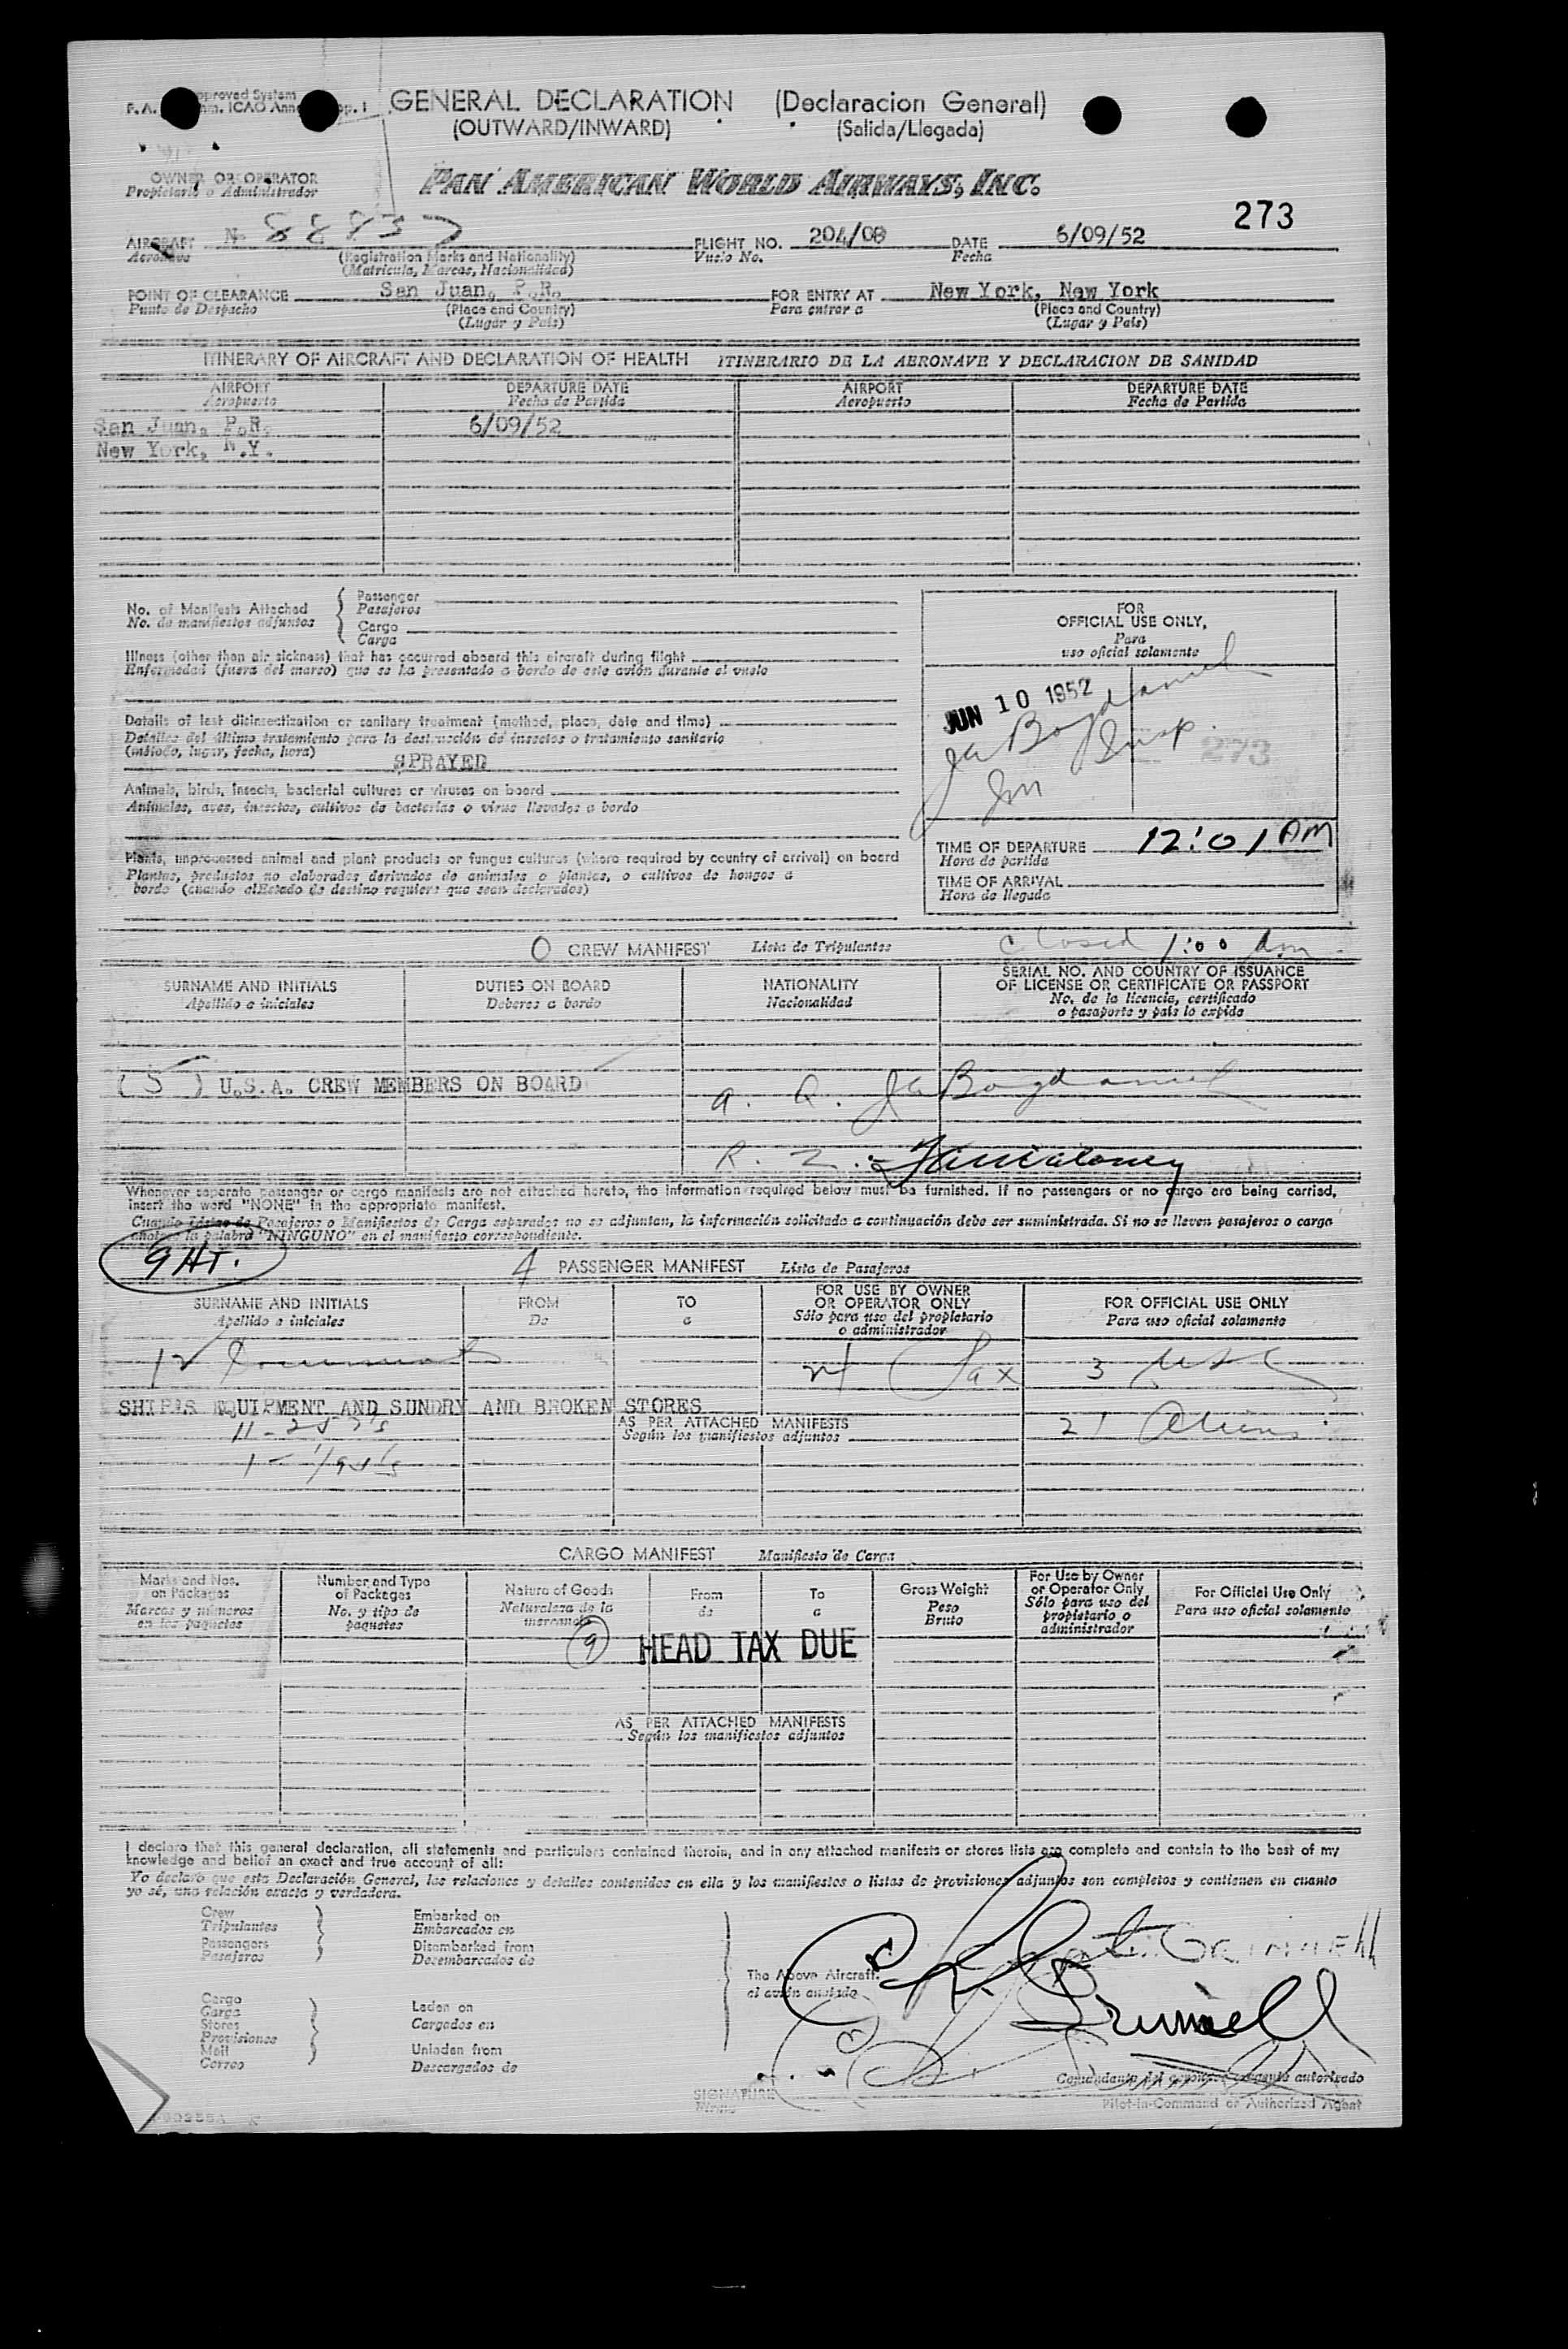 GENERAL DECLARATION (Declaracion General)
(OUTWARD/INWARD) (Salida/Llegada)
OWNER OR OPERATOR
Propietario o Administrador
PAN AMERICAN WORLD AIRWAYS, INC.
273
AIRCRAFT N 88837 FLIGHT NO. 204/08 DATE 6/09/52
Aeronave (Registration Marks and Nationality) Vuelo No. Fecha
(Matricula, Marcas, Nacionalidad)
POINT OF CLEARANCE San Juan, P.R. FOR ENTRY AT New York, New York
Punto de Despacho (Place and Country) Para entrar a (Place and Country)
(Lugar y País) (Lugar y País)
ITINERARY OF AIRCRAFT AND DECLARATION OF HEALTH ITINERARIO DE LA AERONAVE Y DECLARACION DE SANIDAD
AIRPORT DEPARTURE DATE AIRPORT DEPARTURE DATE
Aeropuerto Fecha de Partida Aeropuerto Fecha de Partida
San Juan, P.R. 6/09/52
New York, N.Y.
No. of Manifests Attached
No. de manifiestos adjuntos
Passenger
Pasajeros
Cargo
Carga
Illness (other than air sickness) that has occurred aboard this aircraft during flight
Enfermedad (fuera del mareo) que se ha presentado a bordo de este avión durante el vuelo
Details of last disinsectization or sanitary treatment (method, place, date and time)
Detalles del último tratamiento para la destrucción de insectos o tratamiento sanitario
(método, lugar, fecha, hora)
SPRAYED
Animals, birds, insects, bacterial cultures or viruses on board
Animales, aves, insectos, cultivos de bacterias o virus llevados a bordo
Plants, unprocessed animal and plant products or fungus cultures (where required by country of arrival) on board
Plantas, productos no elaborados derivados de animales o plantas, o cultivos de hongos a
bordo (cuando el Estado de destino requiere que sean declarados)
FOR
OFFICIAL USE ONLY,
Para
uso oficial solamente
JUN 10 1952
Insp.
273
TIME OF DEPARTURE 12:01 AM
Hora de partida
TIME OF ARRIVAL
Hora de llegada
closed 1:00 Am
0 CREW MANIFEST Lista de Tripulantes
SURNAME AND INITIALS DUTIES ON BOARD NATIONALITY SERIAL NO. AND COUNTRY OF ISSUANCE
OF LICENSE OR CERTIFICATE OR PASSPORT
Apellido e iniciales Deberes a bordo Nacionalidad No. de la licencia, certificado
o pasaporte y país lo expide
(5) U.S.A. CREW MEMBERS ON BOARD
Whenever separate passenger or cargo manifests are not attached hereto, the information required below must be furnished. If no passengers or no cargo are being carried,
insert the word "NONE" in the appropriate manifest.
Cuando Listas de Pasajeros o Manifiestos de Carga separados no se adjuntan, la información solicitada a continuación debe ser suministrada. Si no se lleven pasajeros o carga
anotese la palabra "NINGUNO" en el manifiesto correspondiente.
9 HT.
4 PASSENGER MANIFEST Lista de Pasajeros
SURNAME AND INITIALS FROM TO FOR USE BY OWNER
OR OPERATOR ONLY FOR OFFICIAL USE ONLY
Apellido e iniciales De a Sólo para uso del propietario
o administrador Para uso oficial solamente
Pax 3 USC
SHIP'S EQUIPMENT AND SUNDRY AND BROKEN STORES
AS PER ATTACHED MANIFESTS
Según los manifiestos adjuntos
21 Aliens
CARGO MANIFEST Manifiesto de Carga
Marks and Nos.
on Packages
Marcas y números
en los paquetes
Number and Type
of Packages
No. y tipo de
paquetes
Nature of Goods
Naturaleza de la
mercancía
From
de
To
a
Gross Weight
Peso
Bruto
For Use by Owner
or Operator Only
Sólo para uso del
propietario o
administrador
For Official Use Only
Para uso oficial solamente
9 HEAD TAX DUE
AS PER ATTACHED MANIFESTS
Según los manifiestos adjuntos
I declare that this general declaration, all statements and particulars contained therein, and in any attached manifests or stores lists are complete and contain to the best of my
knowledge and belief an exact and true account of all:
Yo declaro que esta Declaración General, las relaciones y detalles contenidos en ella y los manifiestos o listas de provisiones adjuntos son completos y contienen en cuanto
yo sé, una relación exacta y verdadera.
Crew
Tripulantes
Passengers
Pasajeros
Embarked on
Embarcados en
Disembarked from
Desembarcados de
Cargo
Carga
Stores
Provisiones
Mail
Correo
Laden on
Cargados en
Unladen from
Descargados de
The Above Aircraft.
el avión anotado
SIGNATURE
Firma
Comandante del avión o agente autorizado
Pilot-in-Command or Authorized Agent